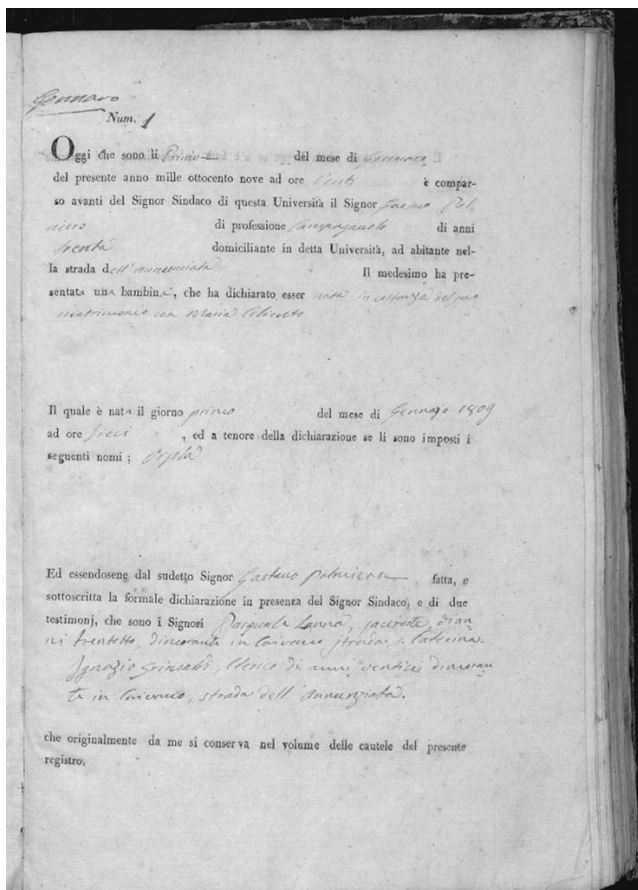 Gennaro
Num. 1
Oggi che sono li Primo del mese di Gennaro
del presente anno mille ottocento nove ad ore venti è compar-
so avanti del Signor Sindaco di questa Università il Signor Gaetano Pal-
miero di professione Campagnuolo di anni
trenta domiciliante in detta Università, ad abitante nel-
la strada dell'annunciata Il medesimo ha pre-
sentata una bambina, che ha dichiarato esser nata in costanza del suo
matrimonio con Maria
Il quale è nata il giorno primo del mese di Gennajo 1809
ad ore dieci, ed a tenore della dichiarazione se li sono imposti i
seguenti nomi;
Ed essendosene dal sudetto Signor Gaetano Palmiero fatta, e
sottoscritta la formale dichiarazione in presenza del Signor Sindaco, e di due
testimonj, che sono i Signori Pasquale Lanna, sacerdote, d'an-
ni trentotto, dimorante in Caivano strada s. Caterina.
Ignazio Clerico di anni ventisei dimoran
te in Caivano, strada dell'annunziata.
che originalmente da me si conserva nel volume delle cautele del presente
registro.